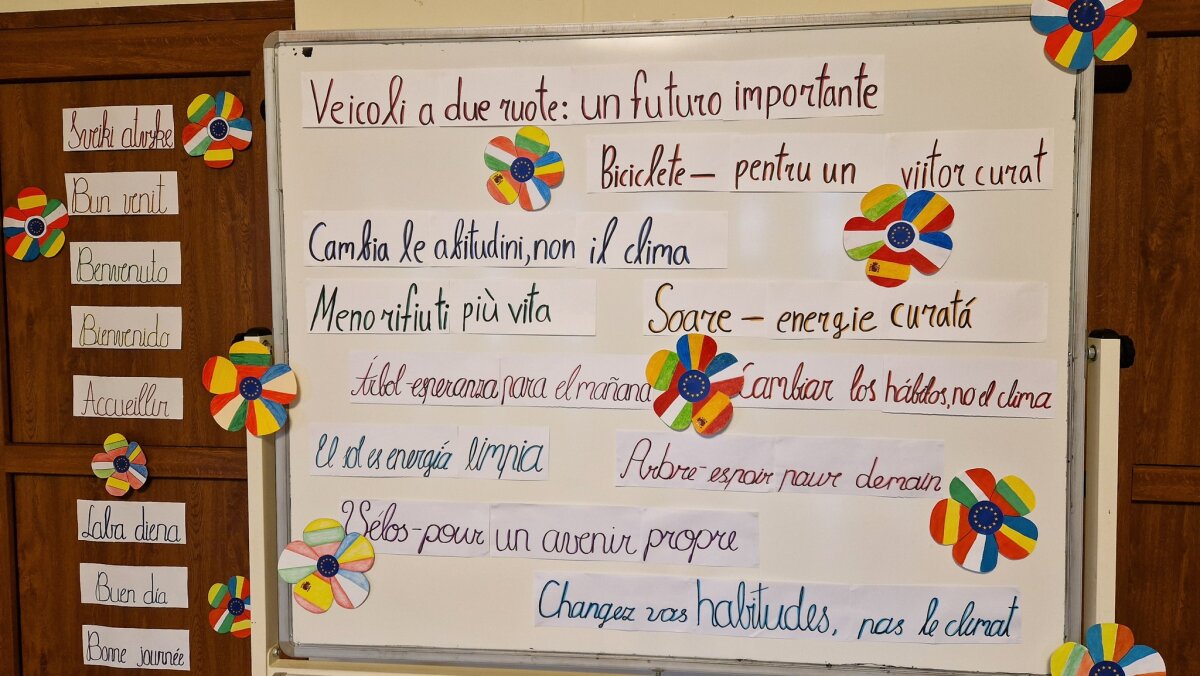 Sveiki atvykę
Bun venit
Benvenuto
Bienvenido
Accueillir
Laba diena
Buen día
Bonne journée
Veicoli a due ruote: un futuro importante
Biciclete – pentru un viitor curat
Cambia le abitudini, non il clima
Meno rifiuti più vita
Soare – energie curată
Árbol-esperanza para el mañana
Cambiar los hábitos, no el clima
El sol es energía limpia
Arbre-espoir pour demain
Vélos-pour un avenir propre
Changez vos habitudes, pas le climat